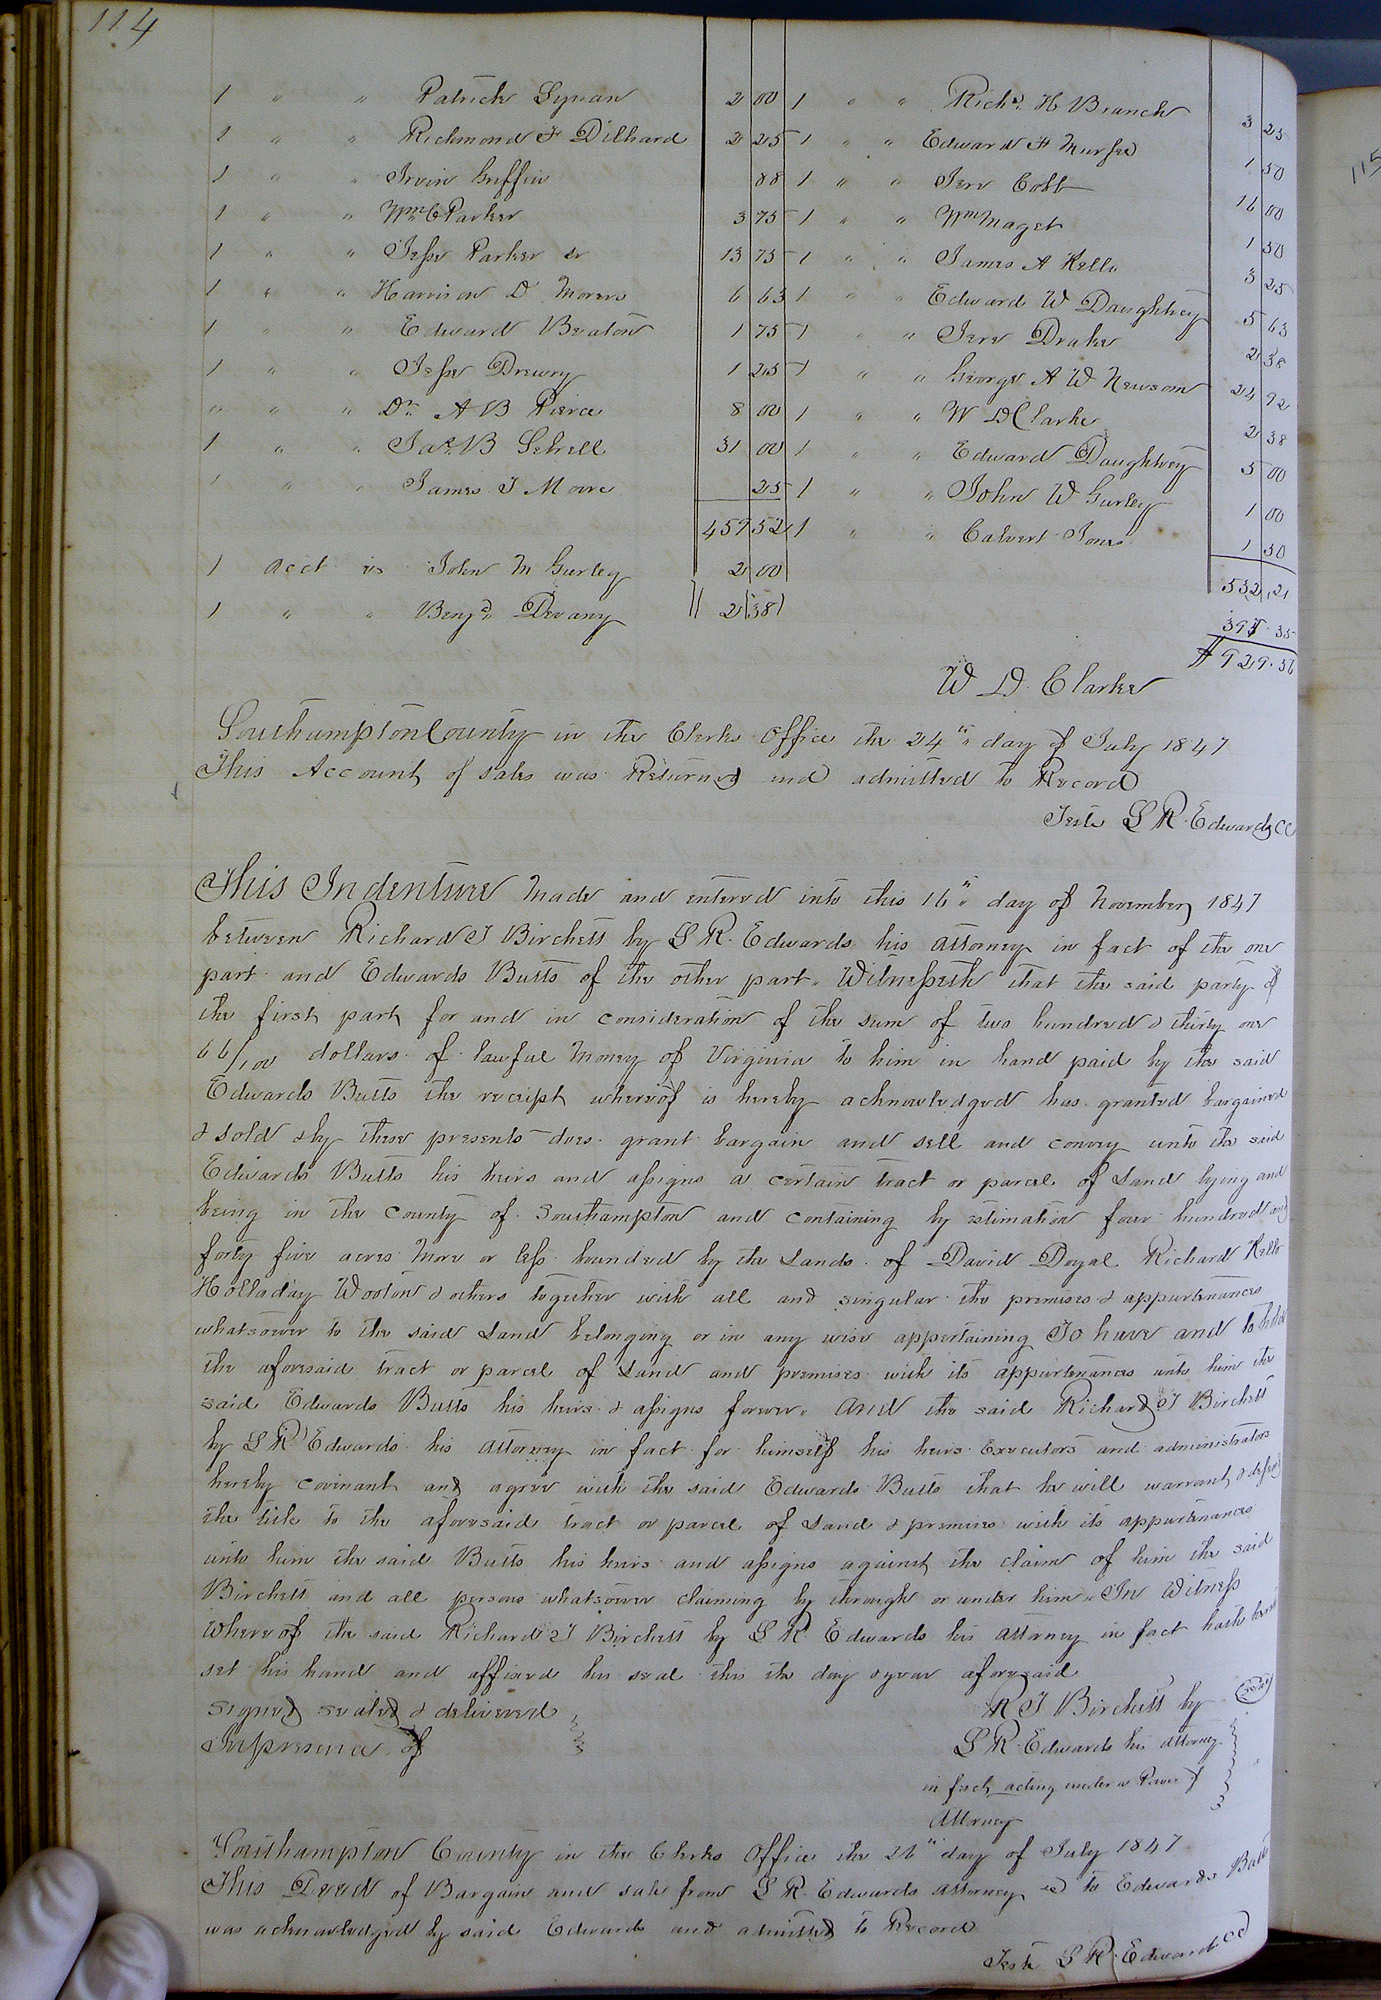 114
1 " " Patrick Lynan 2 00
1 " " Richmond F Dilhard 2 25
1 " " Irvin Griffin 88
1 " " Wm C Parker 3 75
1 " " Jesse Parker sr 13 75
1 " " Harrison D Moore 6 63
1 " " Edward Beaton 1 75
1 " " Jesse Drewry 1 25
" " " Dr. A B Pierce 8 00
1 " " Jas. B Sebrell 31 00
" " " James T Moore 25
459 52
1 acct vs John M Gurley 2 00
1 " " Benj. Devany 2 38
1 " " Richd. H Branch 3 25
1 " " Edward H Murfee 1 50
1 " " Jere Cobb 16 00
1 " " Wm Maget 1 50
1 " " James A Kello 3 25
1 " " Edward W Daughtrey 5 63
1 " " Jere Drake 2 38
1 " " George A W Newsom 24 92
1 " " W D Clarke 2 38
1 " " Edward Daughtrey 5 00
1 " " John W Gurley 1 00
1 " " Calvert Jones 1 50
532.21
397.35
$929.56
W D. Clarke
Southampton County in the Clerks Office the 24th day of July 1847
This Account of sales was Returned and admitted to Record
Teste L R. Edwards CC
This Indenture Made and entered into this 16th day of November 1847
between Richard T Birchett by L R. Edwards his attorney in fact of the one
part and Edwards Butts of the other part. Witnesseth that the said party of
the first part for and in consideration of the sum of two hundred & thirty one
66/100 dollars of lawful money of Virginia to him in hand paid by the said
Edwards Butts the receipt whereof is hereby acknowledged has granted bargained
& sold & by these presents does grant bargain and sell and convey unto the said
Edwards Butts his heirs and assigns a certain tract or parcel of Land lying and
being in the County of Southampton and containing by estimation four hundred and
forty five acres more or less bounded by the Lands of David Doyal Richard Kello
Holladay Wooton & others together with all and singular the premises & appurtenances
whatsoever to the said Land belonging or in any wise appertaining To have and to hold
the aforesaid tract or parcel of Land and premises with its appurtenances unto him the
said Edwards Butts his heirs & assigns forever. And the said Richard T Birchett
by L R Edwards his attorney in fact for himself his heirs Executors and administrators
hereby covinant and agree with the said Edwards Butts that he will warrant & defend
the title to the aforesaid tract or parcel of Land & premises with its appurtenances
unto him the said Butts his heirs and assigns against the claim of him the said
Birchett and all persons whatsoever claiming by through or under him. In Witness
Whereof the said Richard T Birchett by L R Edwards his attorney in fact hath hereto
set his hand and affixed his seal this the day & year aforesaid
Signed sealed & delivered
In presence of
R T Birchett by Seal
L R. Edwards his attorney
in fact acting under a Power of
Attorney
Southampton County in the Clerks Office the 26th day of July 1847
This Deed of Bargain and sale from L R. Edwards attorney &c to Edwards Butts
was acknowledged by said Edwards and admitted to Record
Teste L R. Edwards CC
115